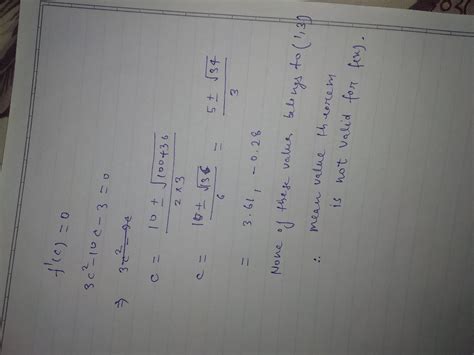 f'(c) = 0
3c² - 10c - 3 = 0
⇒ 3c² - 9c
c = 10 ± √100+36 / 2×3
c = 10 ± √136 / 6 = 5 ± √34 / 3
= 3.61, -0.28
None of these values belongs to (1,3)
∴ mean value theorem
is not valid for f(x).